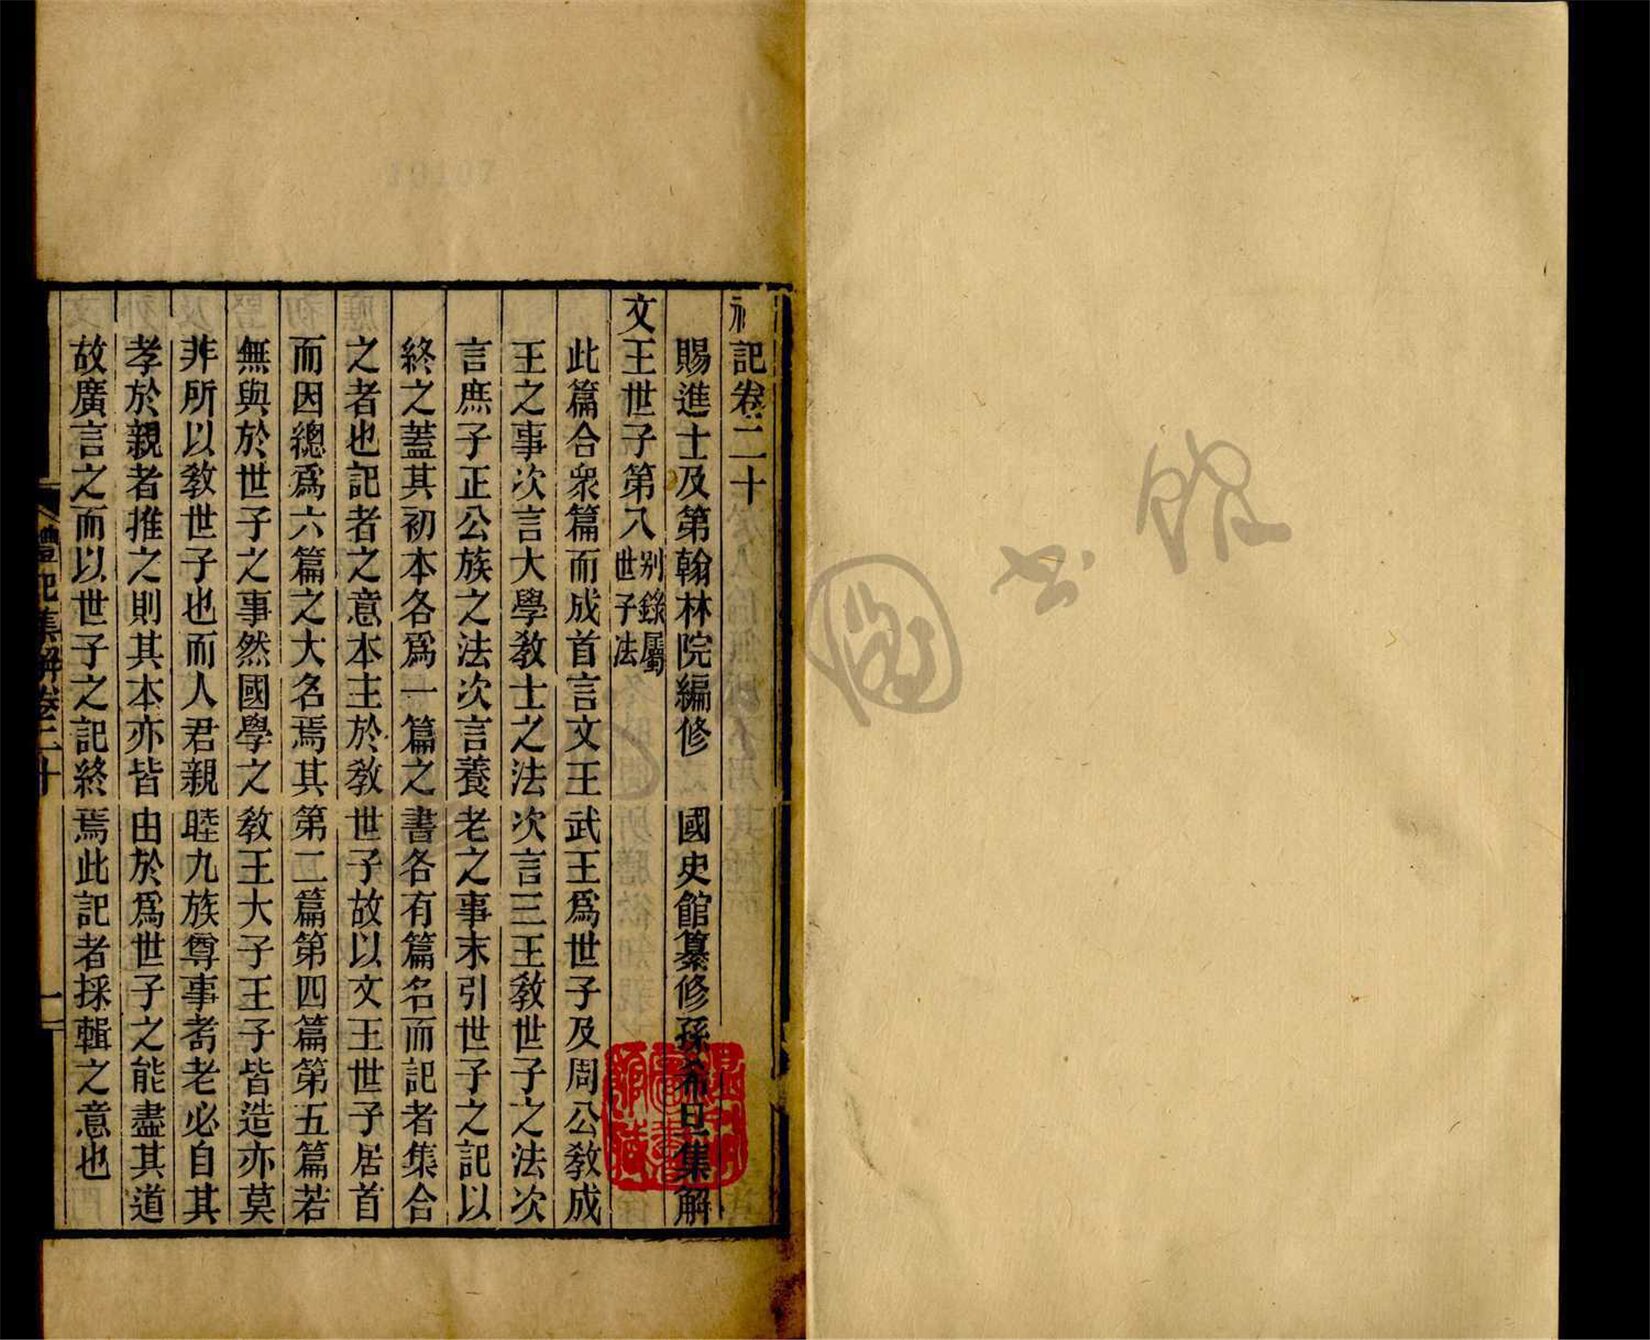 礼記卷二十
賜進士及第翰林院編修 國史館纂修孫希旦集解
文王世子第八 别錄屬世子法
此篇合衆篇而成首言文王武王爲世子及周公敎成
王之事次言大學敎士之法次言三王敎世子之法次
言庶子正公族之法次言養老之事末引世子之記以
終之蓋其初本各爲一篇之書各有篇名而記者集合
之者也記者之意本主於敎世子故以文王世子居首
而因總爲六篇之大名焉其第二篇第四篇第五篇若
無與於世子之事然國學之敎王大子王子皆造亦莫
非所以敎世子也而人君親睦九族尊事耇老必自其
孝於親者推之則其本亦皆由於爲世子之能盡其道
故廣言之而以世子之記終焉此記者採輯之意也
禮記集解卷二十 一
圖书館